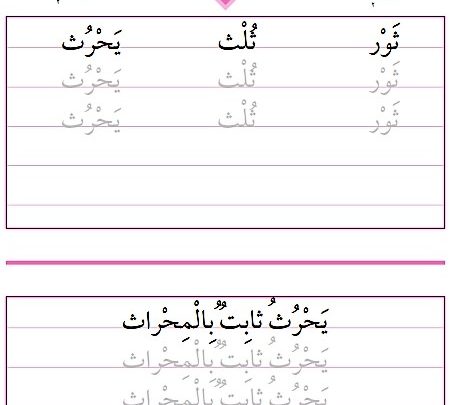 ثَوْر ثُلْث يَحْرُث
ثَوْر ثُلْث يَحْرُث
ثَوْر ثُلْث يَحْرُث
يَحْرُثُ ثابِتٌ بِالْمِحْراث
يَحْرُثُ ثابِتٌ بِالْمِحْراث
يَحْرُثُ ثابِتٌ بِالْمِحْراث